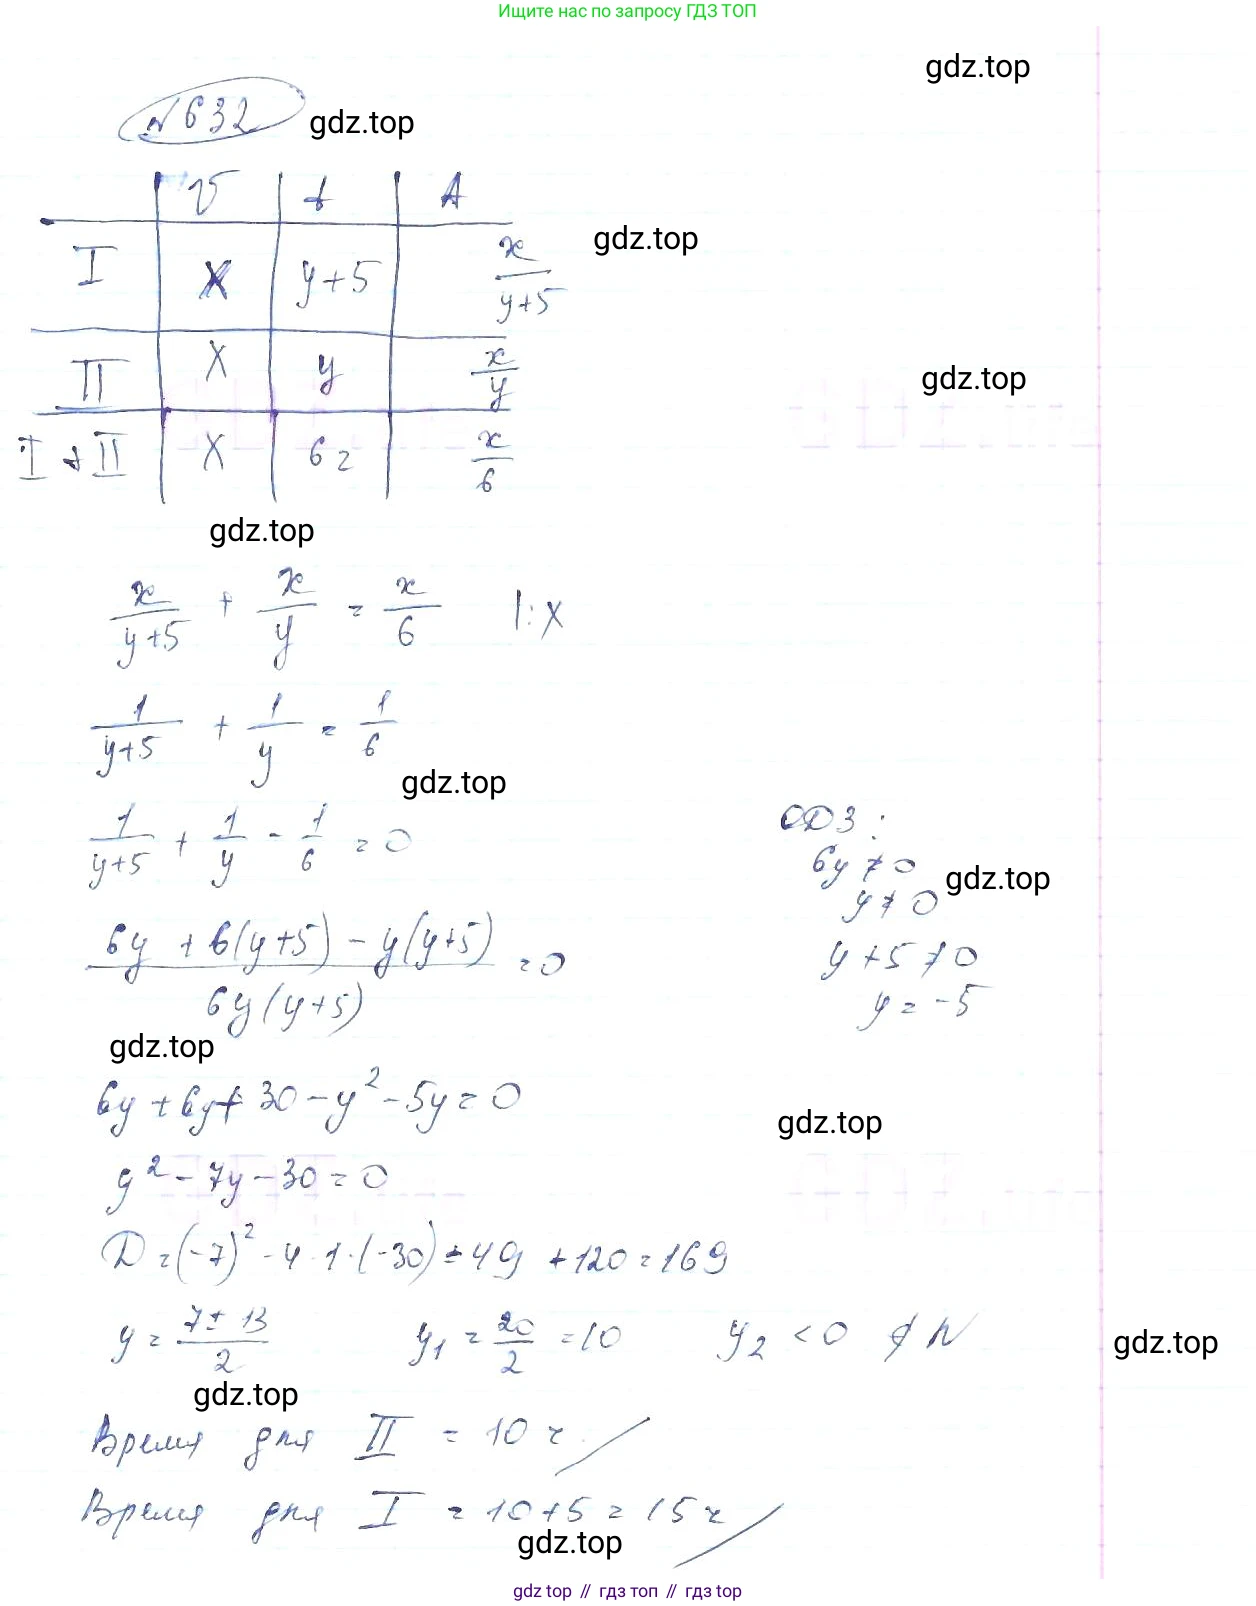 Ищите нас по запросу ГДЗ ТОП
gdz.top
№ 632 gdz.top
V t A
gdz.top
I x y+5 x/(y+5)
II x y x/y
gdz.top
I + II x 6 ч x/6
gdz.top
x/(y+5) + x/y = x/6 |:x
1/(y+5) + 1/y = 1/6
gdz.top
1/(y+5) + 1/y - 1/6 = 0
ОДЗ:
6y ≠ 0
gdz.top
y ≠ 0
(6y + 6(y+5) - y(y+5))/(6y(y+5)) = 0
y + 5 ≠ 0
y = -5
gdz.top
6y + 6y + 30 - y² - 5y = 0
gdz.top
y² - 7y - 30 = 0
D = (-7)² - 4·1·(-30) = 49 + 120 = 169
y = (7 ± 13)/2 y₁ = 20/2 = 10 y₂ < 0 ∉ N
gdz.top
gdz.top
Время для II = 10 ч
Время для I = 10+5 = 15 ч
gdz.top
gdz top // гдз топ // gdz.top